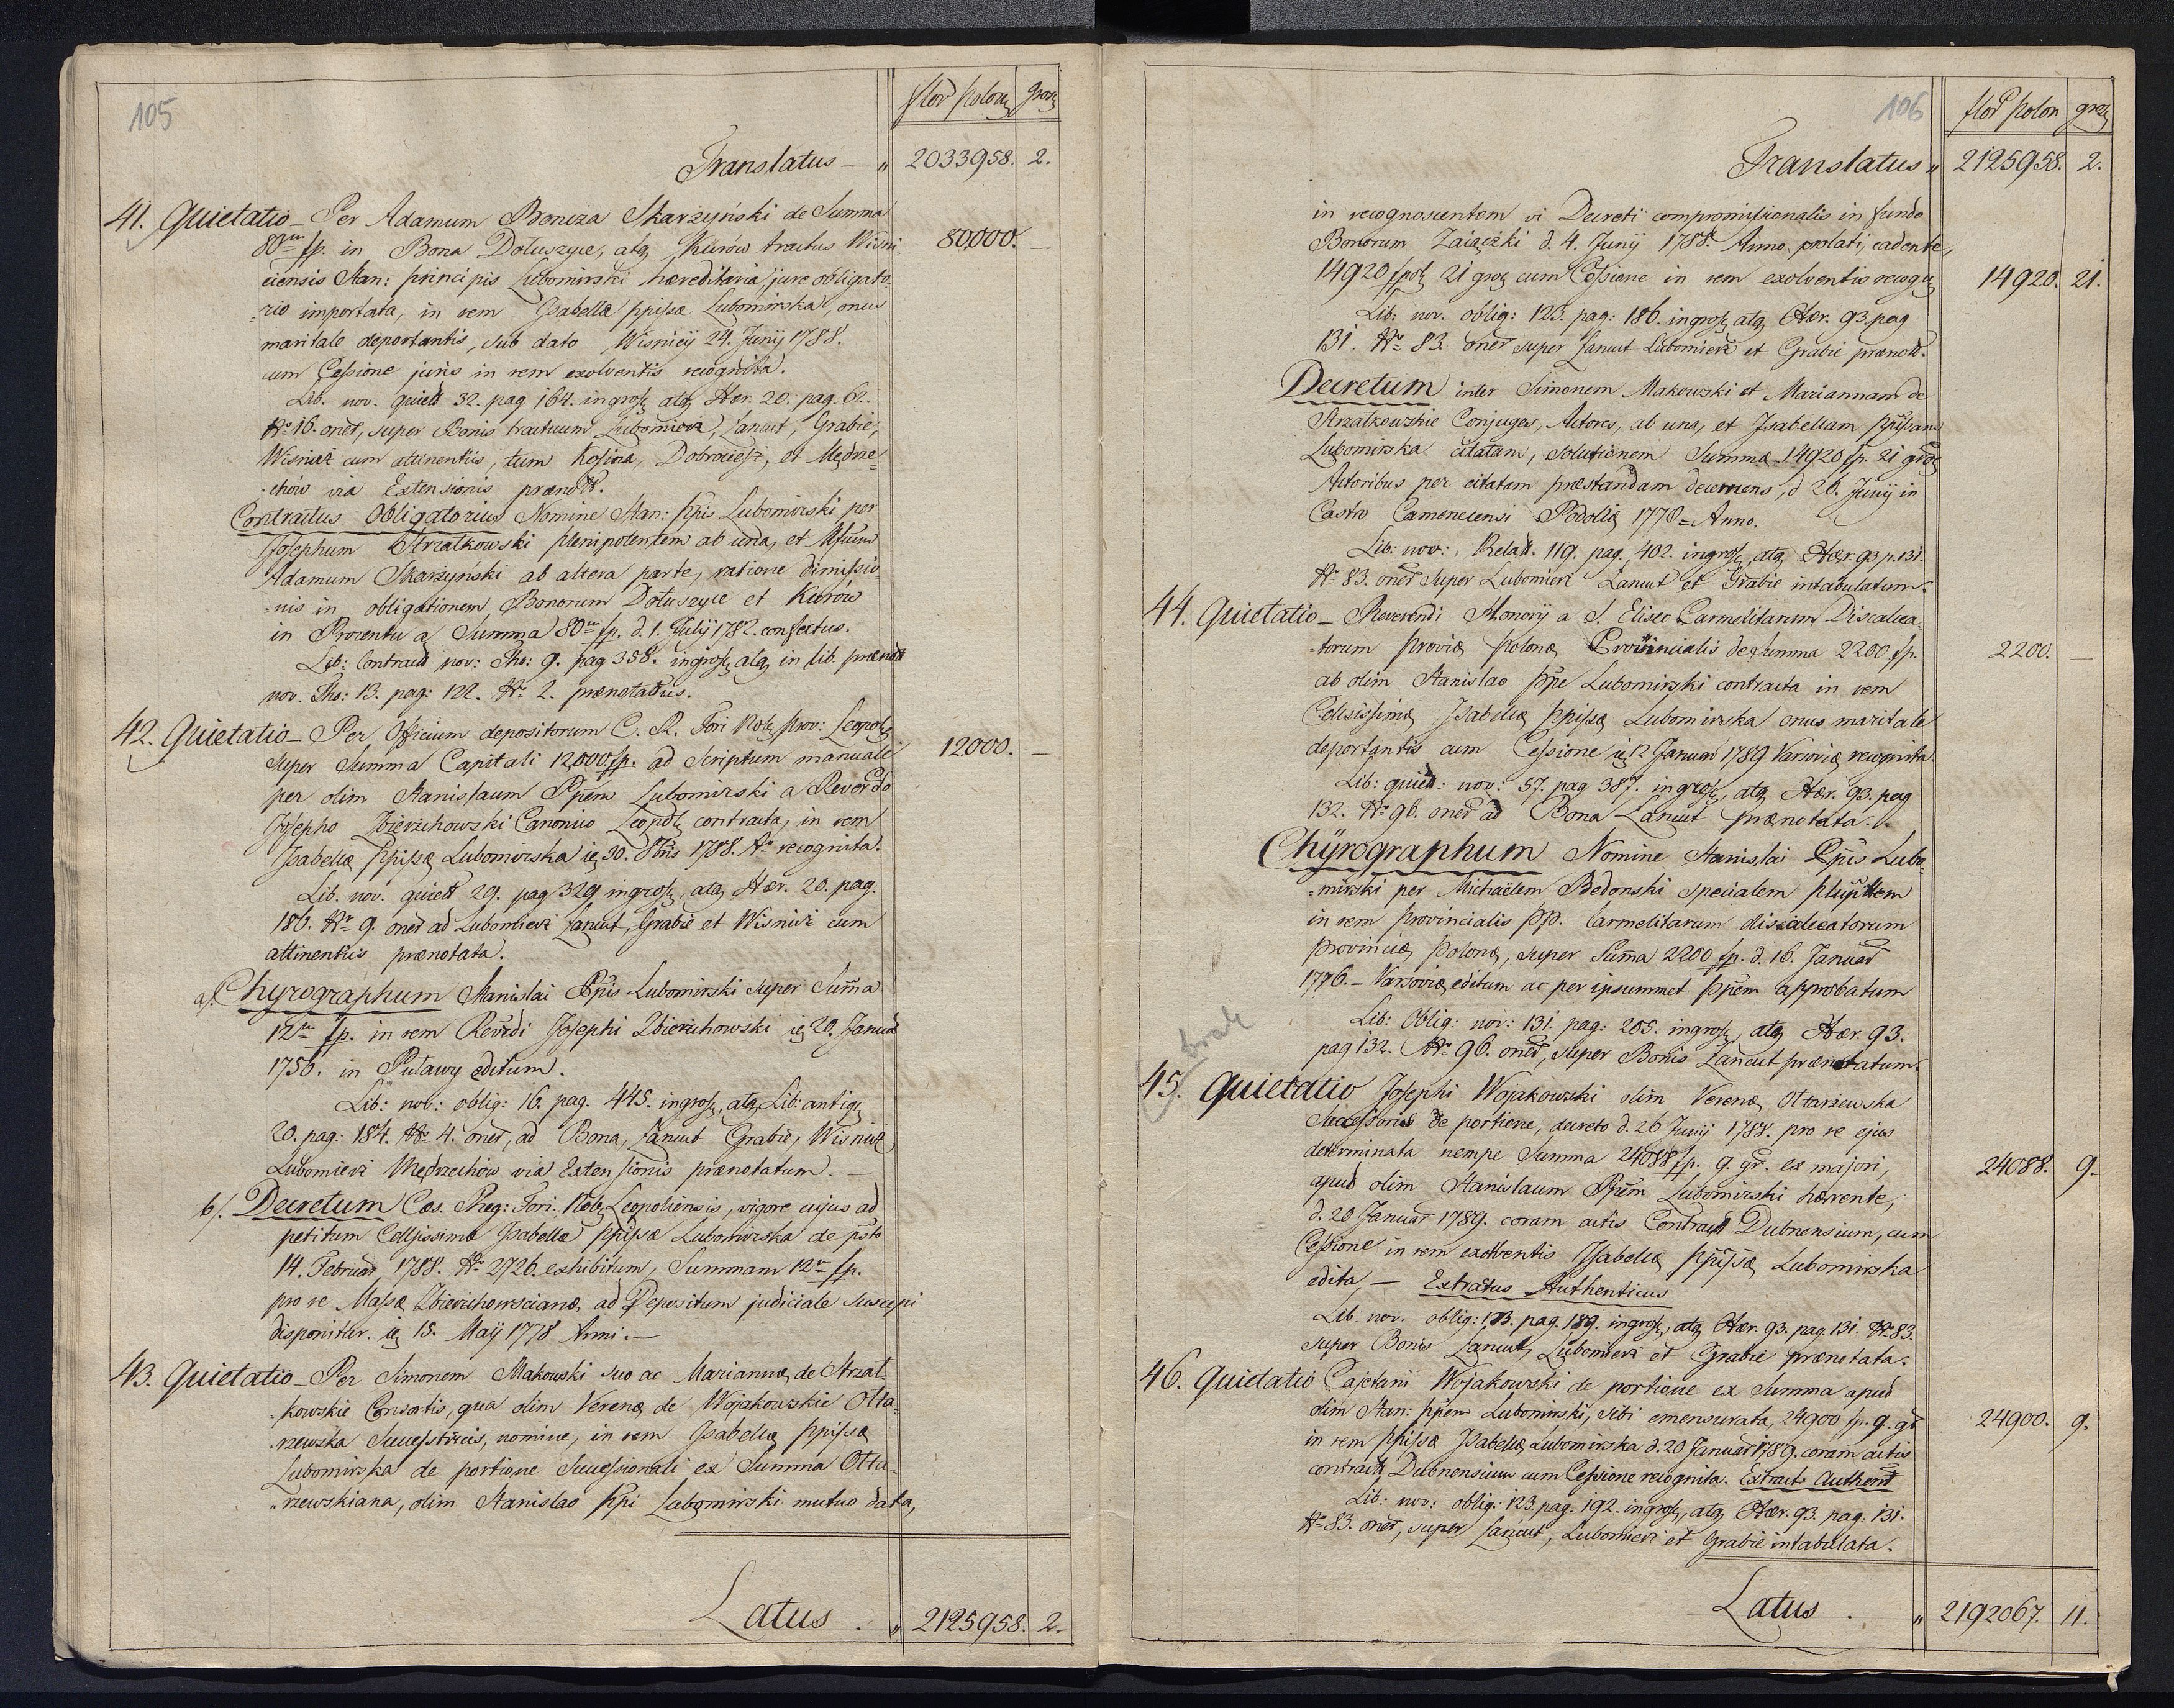 105
flor polon grosz
Translatus — " 2033958. 2.
41. Quietatio – Per Adamum Boniza Skarżyński de Summa
80m fp. in Bona Doluszyce, atq Kurow tractus Wisni- 80000. —
ciensis Stan: principis Lubomirski hæreditaria jure obligato-
rio importata, in rem Isabellæ ppissæ Lubomirska, onus
maritale deportantis, sub dato Wisnicy 24. Junij 1788.
cum Cessione juris in rem exolventis recognita.
Lib. nov. quiett 32. pag 164. ingross, atq Hær. 20. pag. 62.
Nr 16. oner, super Bonis tractuum Lubomierz, Łancut, Grabie,
Wisnicz cum attinentiis, tum Kosina, Dobrowesz, et Mędrze-
chów via Extensionis prænott.
Contractus Obligatorius Nomine Stan: Ppis Lubomirski per
Josephum Strzałkowski plenipotentem ab una, et Mfcum
Adamum Skarżyński ab altera parte, ratione dimissio-
nis in obligationem Bonorum Dołuszyce et Kurów
in Procentu a Summa 80m fp. d. 1. Julij 1782. confectus.
Lib: Contract nov: Tho: 9. pag 358. ingross, atq in lib. prænott
nov. Tho: 13. pag: 122. Nr. 2. prænotatus.
42. Quietatio – Per Officium depositorum C. R. Fori Nob, prov: Leopol
super Summa Capitali 12,000 fp. ad Scriptum manuale 12000. —
per olim Stanislaum Ppem Lubomirski a Reverdo
Josepho Zbierzchowski Canonico Leopol contracta, in rem
Isabellæ Ppissæ Lubomirska 30. 8bris 1788. Ao recognita.
Lib. nov. quiett 29. pag 329 ingross, atq Hær. 20. pag.
186. Nr 9. oner ad Lubomierz Łancut, Grabie et Wisnicz cum
attinentiis prænotata.
a/. Chyrographum Stanislai Ppis Lubomirski super Suma
12m fp. in rem Revrdi Josephi Zbierzchowski 20. Januar
1756. in Puławy editum.
Lib: nov: oblig: 16. pag. 445. ingross, atq Lib: antiq
20. pag: 184. Nr 4. oner, ad Bona, Łancut Grabie, Wisnicz
Lubomierz Mędrzechów via Extensionis prænotatum. —
b/. Decretum Cæs. Reg: Fori Nob, Leopoliensis, vigore cujus ad
petitum Cellssimæ Isabellæ ppissæ Lubomirska de psto
14. Februar 1788. Nr 2726. exhibitum, Summam 12m fp.
pro re Massæ Zbierzchowscianæ ad Depositum judiciale suscipi
disponitur. 15. Maij 1778 Anni. —
43. Quietatio – Per Simonem Makowski suo ac Mariannæ de Strzał-
kowskie Consortis, qua olim Verenæ de Wojakowskie Otta-
rzewska Successtricis, nomine, in rem Isabellæ ppissæ
Lubomirska de portione Successionali ex Summa Otta-
rzewskiana, olim Stanislao Ppi Lubomirski mutuo data,
Latus . " 2125958. 2.
106
flor polon grosz
Translatus " 2125958. 2.
in recognoscentem vi Decreti compromissionalis in fundo
Bonorum Zaiączki d. 4. Junij 1788. Anno prolati, cadente,
14920 fpol 21 gros cum Cessione in rem exolventis recogn 14920. 21.
Lib: nov. oblig: 123. pag: 186. ingross, atq Hær. 93. pag
131. Nr 83. oner super Łancut Lubomierz et Grabie prænott.
Decretum inter Simonem Makowski et Mariannam de
Strzałkowskie Conjuges, Actores, ab una, et Isabellam Ppissam
Lubomirska citatam, solutionem Summæ 14920 fp. 21 gros
Actoribus per citatam præstandam decernens, d 26. Junij in
Castro Camenecensi Podoliæ 1778 = Anno.
Lib: nov: Relatt. 119. pag. 402. ingross, atq Hær. 93 p. 131.
Nr 83. oner super Lubomierz Łancut et Grabie intabulatum.
44. Quietatio – Reverendi Honorij a S. Eliseo Carmelitarum Discalcea-
torum Proviæ Polonæ Provincialis de Summa 2200 fp. 2200. —
ab olim Stanislao Ppe Lubomirski contracta in rem
Celsissimæ Isabellæ Ppissæ Lubomirska onus maritale
deportantis cum Cessione 12 Januar 1789 Varsoviæ recognita.
Lib: quiett: nov: 57. pag 387. ingross, atq Hær. 93. pag
132. Nr 96. oner ad Bona Łancut prænotata.
Chÿrographum Nomine Stanislai Ppis Lubo-
mirski per Michaëlem Bedonski specialem plnpttem
in rem provincialis PP. Carmelitarum discalceatorum
provinciæ Polonæ, super Suma 2200 fp. d. 16. Januar
1776. – Varsoviæ editum ac per ipsummet Ppem approbatum
Lib: Oblig: nov: 131. pag: 205. ingross, atq Hær. 93.
pag 132. Nr 96. oner, super Bonis Łancut prænotatum.
brak
45. Quietatio Josephi Wojakowski olim Verenæ Ottarzewska
Successoris de portione, decreto d. 26 Junij 1788. pro re ejus
determinata nempe Summa 24088 fp. 9. gr. ex majori, 24088. 9.
apud olim Stanislaum Ppem Lubomirski hærente,
d. 20 Januar 1789. coram actis Contractt Dubnensium, cum
Cessione in rem exolventis Isabellæ Ppissæ Lubomirska
edita, — Extractus Authenticus
Lib. nov. oblig: 123. pag. 189. ingross, atq Hær. 93. pag. 131. Nr. 83.
super Bonis Łancut, Lubomierz et Grabie prænotata.
46. Quietatio Cajetani Wojakowski de portione ex Summa apud
olim Stan: Ppem Lubomirski, sibi emensurata, 24900 fp. 9. gr 24900. 9.
in rem Ppissæ Isabellæ Lubomirska d. 20 Januar 1789. coram actis
contractt, Dubnensium cum Cessione recognita. Extract: Authent
Lib: nov: oblig: 123. pag. 192. ingross, atq Hær. 93. pag: 131.
Nr 83. oner, super Łancut, Lubomierz et Grabie intabulata.
Latus . " 2192067. 11.